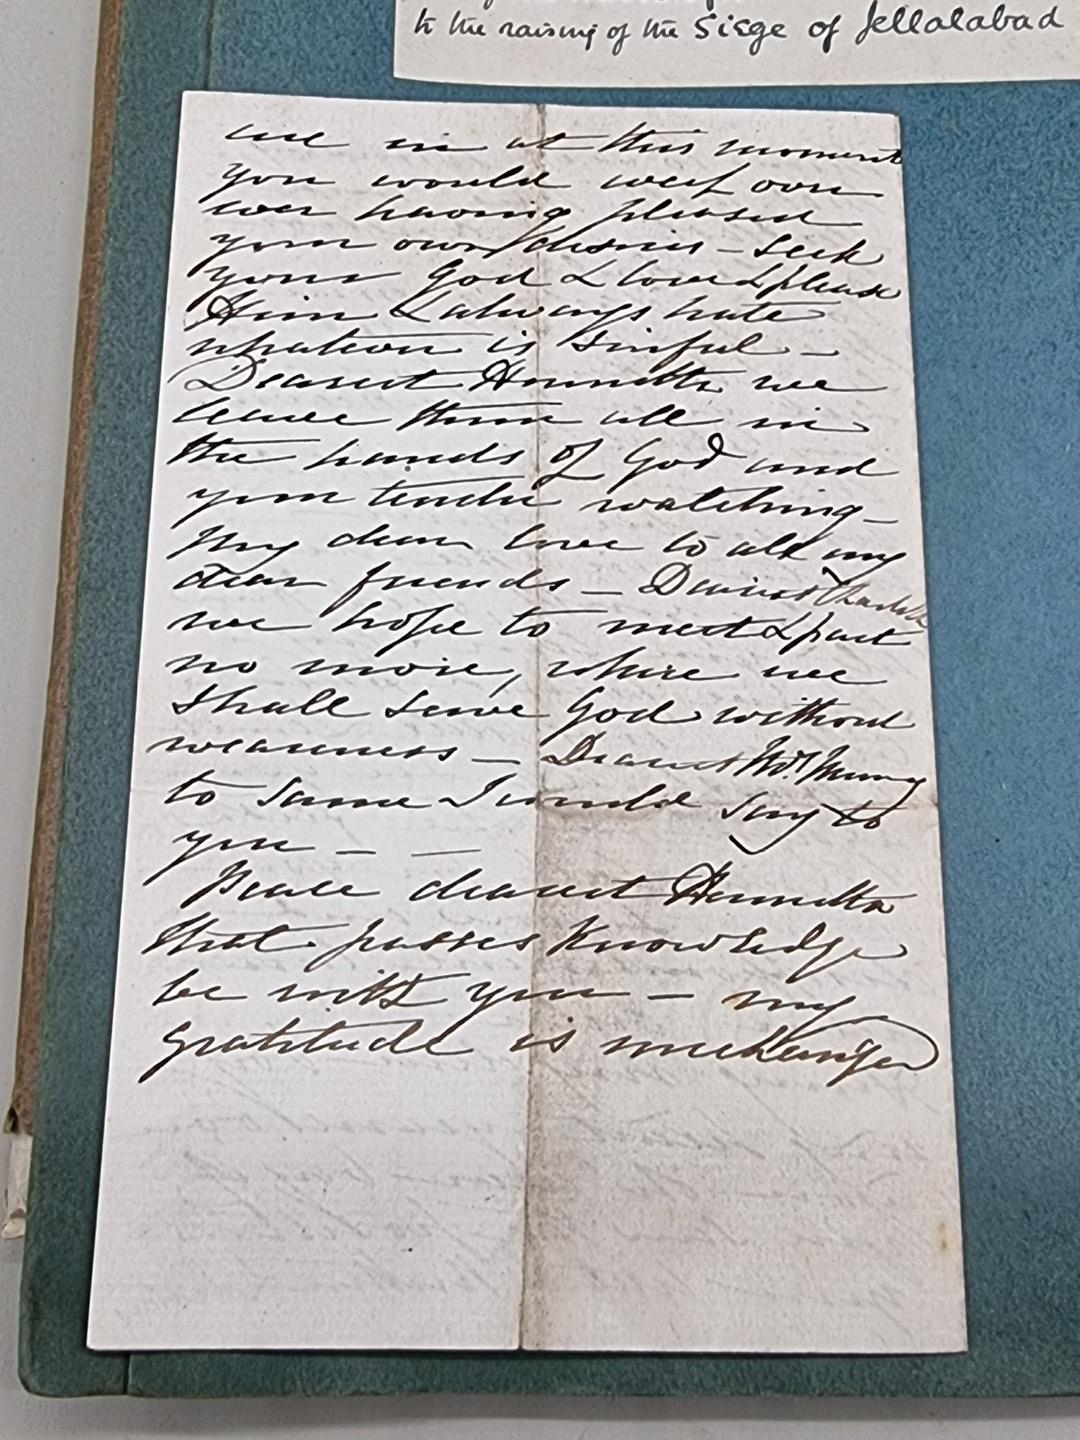 to the raising of the Siege of Jellalabad
are in at this moment
you would weep over
ever having pleased
your own desires - Seek
your God & love & please
Him & always hate
whatever is sinful -
Dearest Henrietta we
leave them all in
the hands of God and
your tender watching -
My dear love to all my
dear friends - Dearest Charlotte
we hope to meet & part
no more, where we
shall serve God without
weariness - Dearest
to same I would say to
you - -
Peace dearest Henrietta
that passes knowledge
be with you - my
gratitude is unchanged